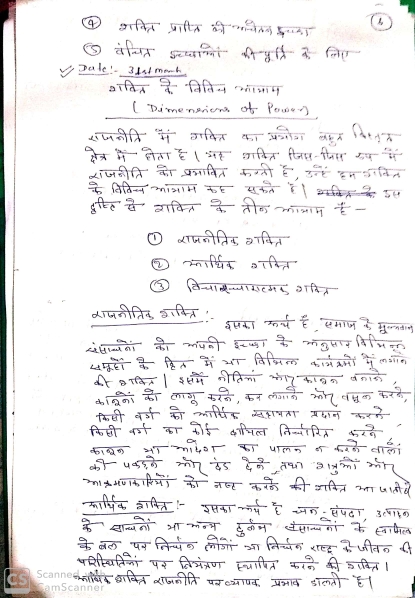 ④ शक्ति प्राप्ति की इच्छा
⑤ वंचित इच्छाओं की पूर्ति के लिए
✓ Date:- 31st march
शक्ति के विविध आयाम
(Dimensions of Power)
राजनीति में शक्ति का प्रयोग बहुत विस्तृत
क्षेत्र में होता है। यह शक्ति जिस-जिस रूप में
राजनीति को प्रभावित करती है, उन्हें हम शक्ति
के विविध आयाम कह सकते हैं। इस
दृष्टि से शक्ति के तीन आयाम हैं -
① राजनीतिक शक्ति
② आर्थिक शक्ति
③ विचारधारात्मक शक्ति
राजनीतिक शक्ति :- इसका अर्थ है, समाज के मूल्यवान
संसाधनों को अपनी इच्छा के अनुसार विभिन्न
समूहों के हित में या विभिन्न कार्यक्रमों में लगाने
की शक्ति। इसमें नीतियां और कानून बनाने,
कानूनों को लागू करने, कर लगाने और वसूल करने,
किसी वर्ग को आर्थिक सहायता प्रदान करने
किसी वर्ग का कोई निर्धारित करने,
कानून या आदेश का पालन न करने वालों
को पकड़ने और दंड देने, तथा शत्रुओं और
आक्रमणकारियों को नष्ट करने की शक्ति आ जाती है
आर्थिक शक्ति :- इसका अर्थ है धन-संपदा उत्पादन
के साधनों या अन्य दुर्लभ संसाधनों के स्वामित्व
के बल पर निर्धन लोगों या निर्धन राष्ट्र के जीवन की
परिस्थितियों पर नियंत्रण स्थापित करने की शक्ति।
आर्थिक शक्ति राजनीति पर व्यापक प्रभाव डालती है।
CS Scanned with
CamScanner